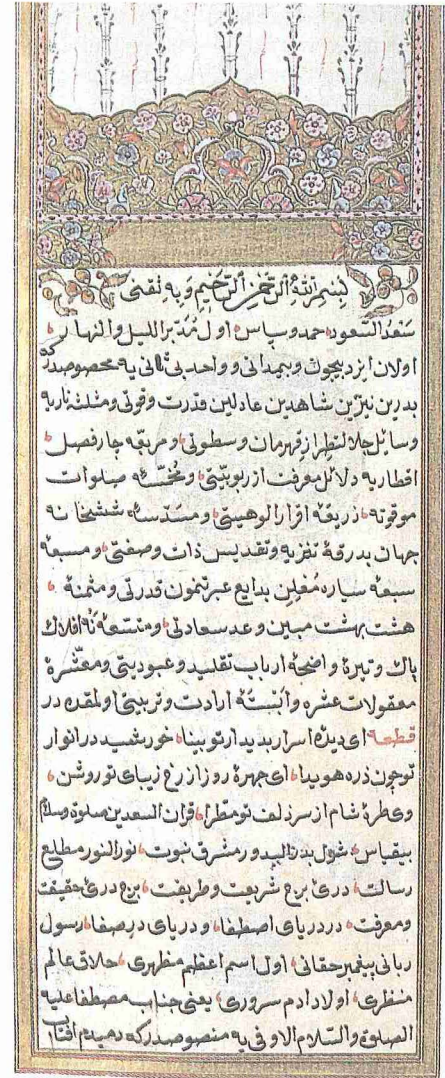 بسم الله الرحمن الرحيم وبه ثقتى
سعد السعود حمد وسپاس اول مدبر الليل والنهار
اولان ايزد بيچون وبيمدانى وواحد بى ثانى يه مخصوصدركه
بدرين نيرين شاهدين عادلين قدرت وقوتى ومثلثه ناريه
وسائل جلالتطراز قهرمان وسطوتى ومربعه چار فصل
اقطاريه دلائل معرفت از ربوبيتى ومخمسه صلوات
موقوته ذريعه اقرار الوهيتى ومسدسه ششخانه
جهان بدرقه تنزيه وتقديس ذات وصفتى ومسبعه
سبعه سياره معلن بدايع عبرتنمون قدرتى ومثمنه
هشت بهشت مبين وعد سعادتى ومتسعه نه افلاك
پاك وتيره واضحه ارباب تقليد وعبوديتى ومعشره
معقولات عشره وابنيته ارادت وتربيتى اولمقده در
قطعه اى ديده اسرار بديدار تو بينا خورشيد در انوار
تو چون ذره هويدا اى چهره روز از رخ زيباى تو روشن
وى طره شام از سر زلف تو مطرا قران السعدين صلوة وسلام
بيقياس شول بدر البدور مشرق نبوت نور النور مطلع
رسالت درى برج شريعت وطريقت برج درئ حقيقت
ومعرفت در درياى اصطفا ودرياى در صفا رسول
ربانى پيغمبر حقانى اول اسم اعظم مظهرى خلاق عالم
منظرى اولاد ادم سرورى يعنى جناب مصطفا عليه
الصلوة والسلام الاوفى يه منصوصدركه دميدم افتاب